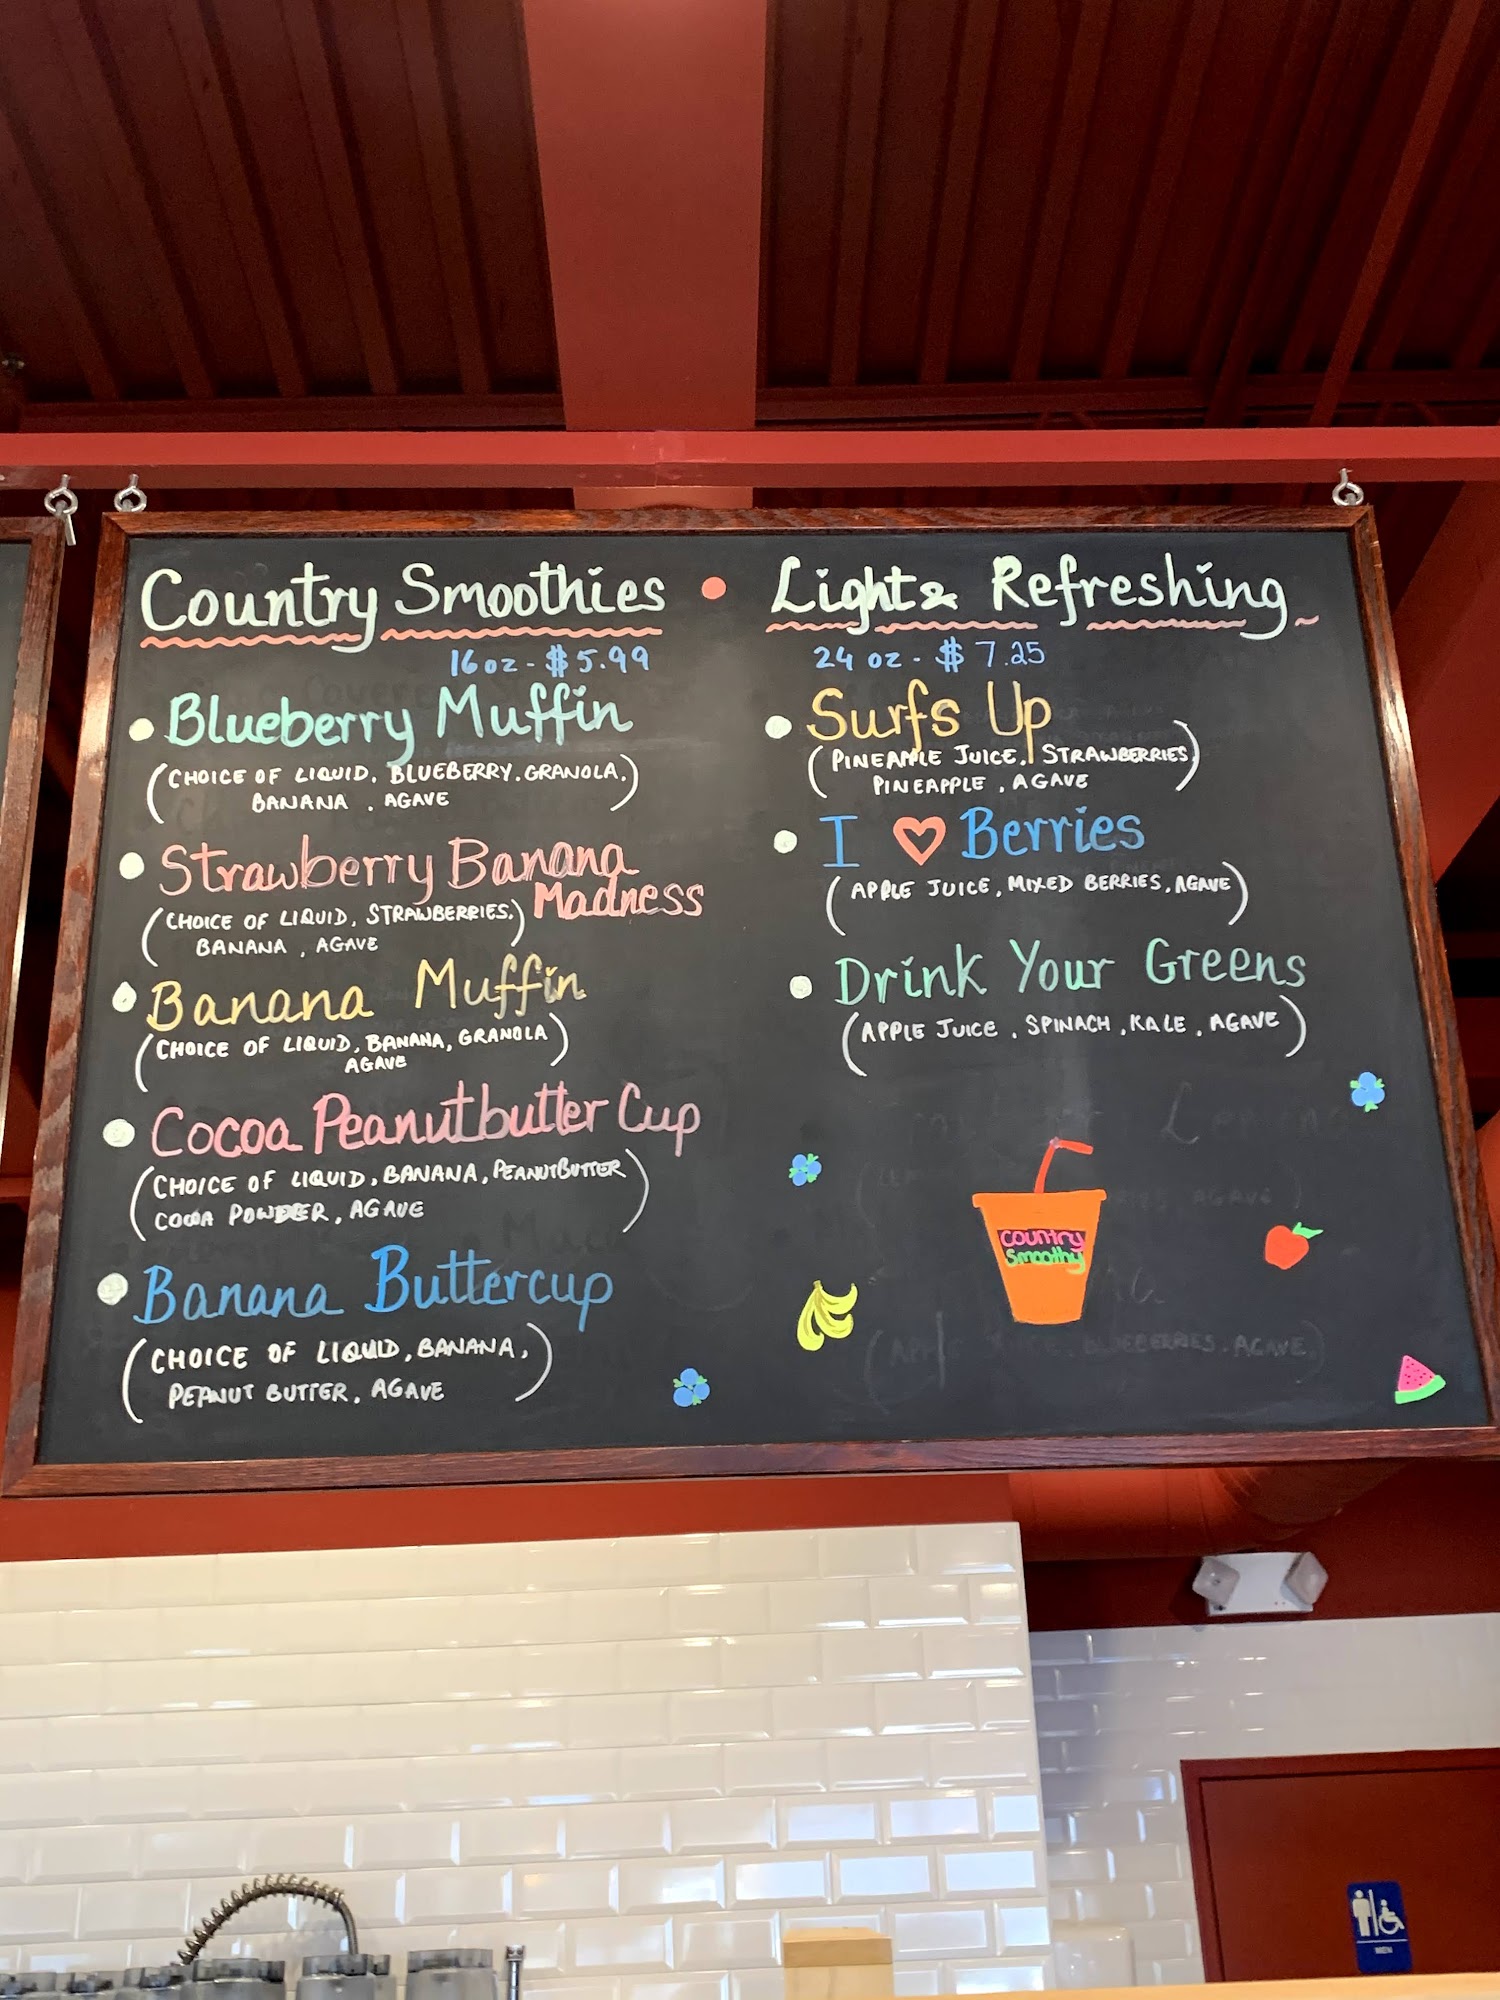 Country Smoothies • Light & Refreshing
16 oz - $5.99
24 oz - $7.25
Blueberry Muffin
(CHOICE OF LIQUID, BLUEBERRY, GRANOLA,
BANANA, AGAVE)
Strawberry Banana
Madness
(CHOICE OF LIQUID, STRAWBERRIES,
BANANA, AGAVE)
Banana Muffin
(CHOICE OF LIQUID, BANANA, GRANOLA
AGAVE)
Cocoa Peanutbutter Cup
(CHOICE OF LIQUID, BANANA, PEANUTBUTTER
COCOA POWDER, AGAVE)
Banana Buttercup
(CHOICE OF LIQUID, BANANA,
PEANUT BUTTER, AGAVE)
Surfs Up
(PINEAPPLE JUICE, STRAWBERRIES,
PINEAPPLE, AGAVE)
I ♡ Berries
(APPLE JUICE, MIXED BERRIES, AGAVE)
Drink Your Greens
(APPLE JUICE, SPINACH, KALE, AGAVE)
Country
Smoothy
AGAVE)
BLUEBERRIES, AGAVE)
MEN